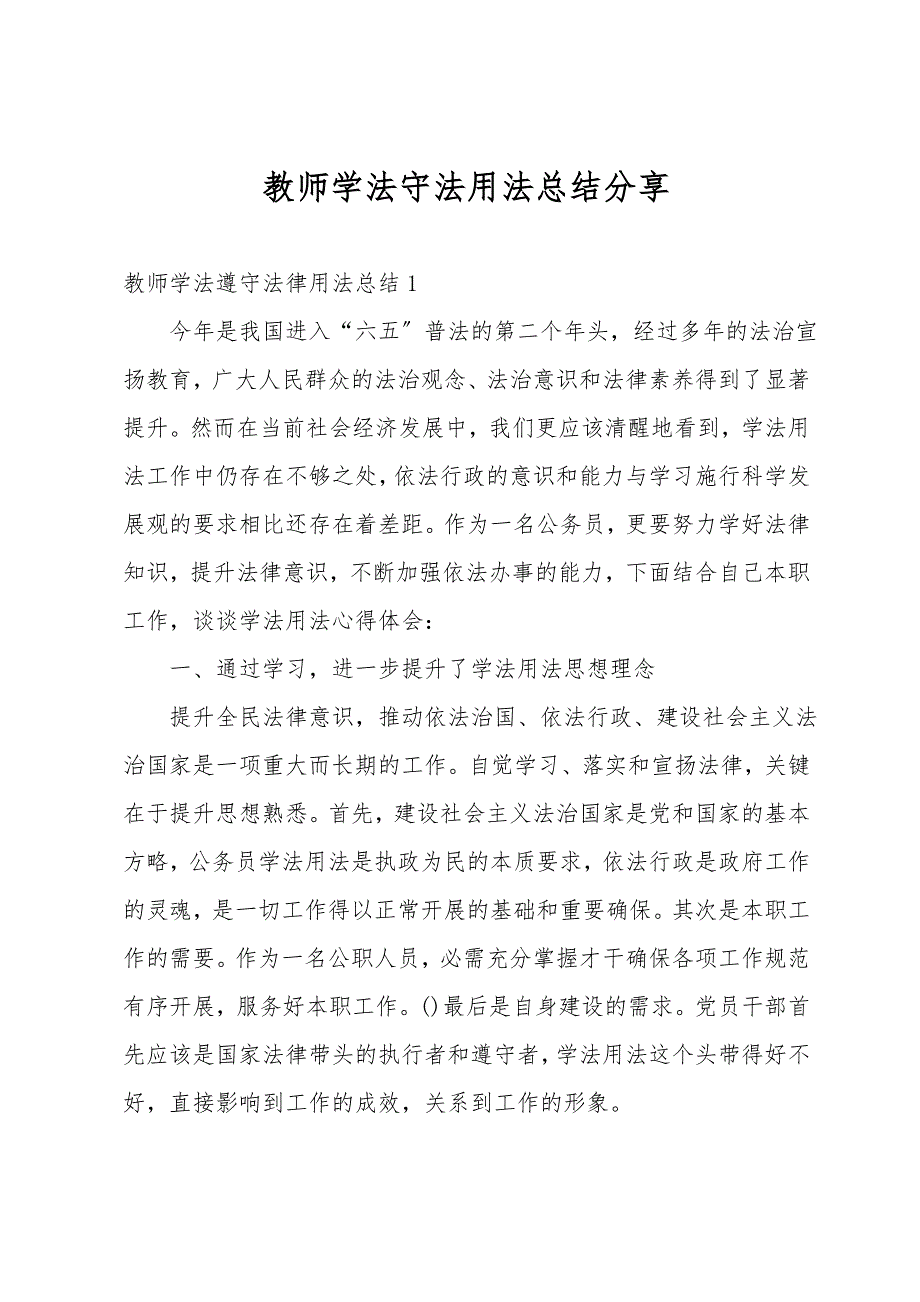 教师学法守法用法总结分享
教师学法遵守法律用法总结1
今年是我国进入“六五〞普法的第二个年头，经过多年的法治宣
扬教育，广大人民群众的法治观念、法治意识和法律素养得到了显著
提升。然而在当前社会经济发展中，我们更应该清醒地看到，学法用
法工作中仍存在不够之处，依法行政的意识和能力与学习施行科学发
展观的要求相比还存在着差距。作为一名公务员，更要努力学好法律
知识，提升法律意识，不断加强依法办事的能力，下面结合自己本职
工作，谈谈学法用法心得体会：
一、通过学习，进一步提升了学法用法思想理念
提升全民法律意识，推动依法治国、依法行政、建设社会主义法
治国家是一项重大而长期的工作。自觉学习、落实和宣扬法律，关键
在于提升思想熟悉。首先，建设社会主义法治国家是党和国家的基本
方略，公务员学法用法是执政为民的本质要求，依法行政是政府工作
的灵魂，是一切工作得以正常开展的基础和重要确保。其次是本职工
作的需要。作为一名公职人员，必需充分掌握才干确保各项工作规范
有序开展，服务好本职工作。()最后是自身建设的需求。党员干部首
先应该是国家法律带头的执行者和遵守者，学法用法这个头带得好不
好，直接影响到工作的成效，关系到工作的形象。